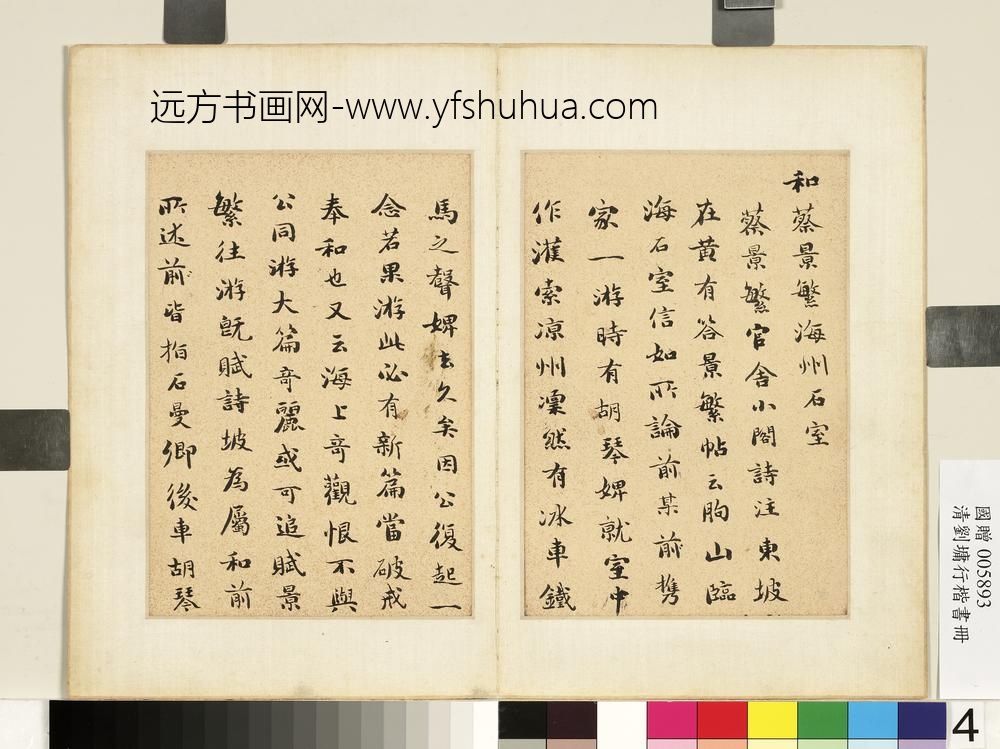 远方书画网-www.yfshuhua.com
和蔡景繁海州石室
蔡景繁官舍小閣詩注東坡
在黄有答景繁帖云朐山臨
海石室信如所論前某前携
家一游時有胡琴婢就室中
作濩索凉州凜然有冰車鐵
馬之聲婢去久矣因公復起一
念若果游此必有新篇當破戒
奉和也又云海上奇觀恨不與
公同游大篇奇麗或可追賦景
繁往游既賦詩坡為屬和前
所述前皆指石曼卿後車胡琴
國贈 005893
清劉墉行楷書冊
4